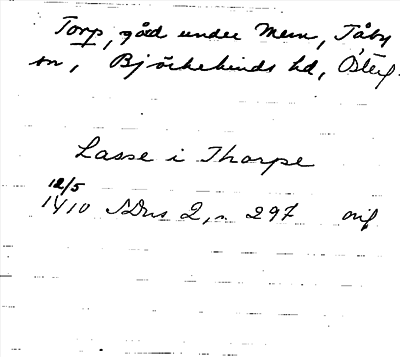 Torp, gård under Mem, Tåby
sn, Björkekinds hd, Östg.
Lasse i Thorpe
12/5
1410 SDns 2, s. 297 orig